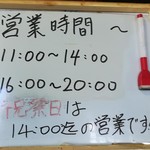 営業時間 ～
11:00～14:00
16:00～20:00
祝祭日は
14:00迄の営業です